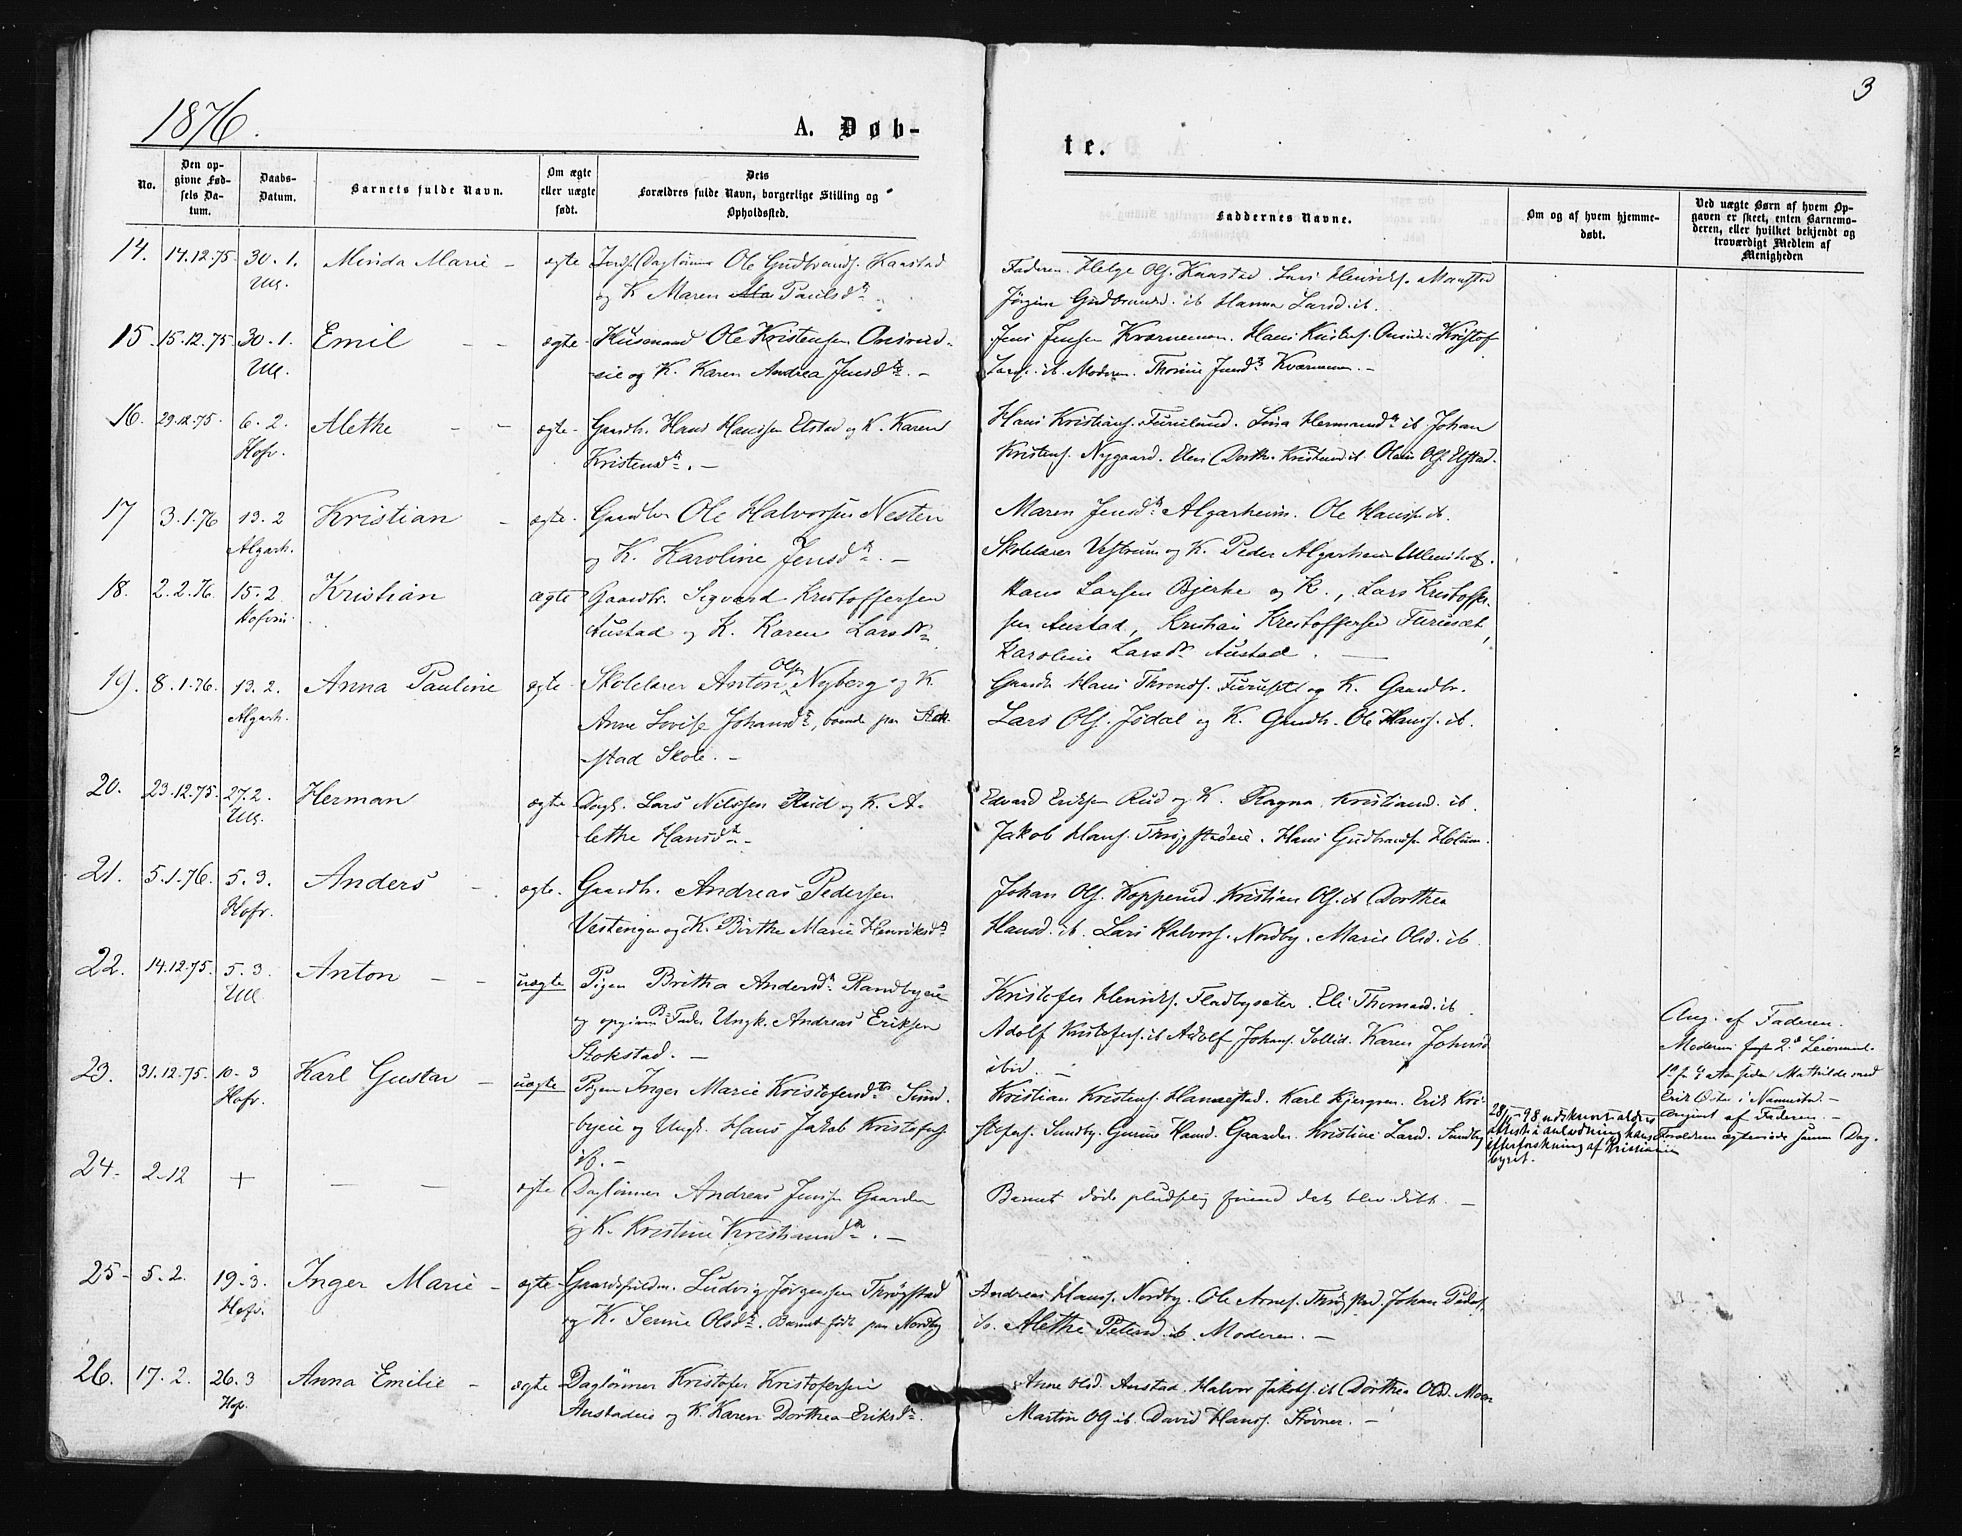 1876.
A. Døb-
te.
3
No.
Den op-
givne Fød-
sels Da-
tum.
Daabs-
Datum.
Barnets fulde Navn.
Om ægte
eller uægte
født.
Dets
Forældres fulde Navn, borgerlige Stilling og
Opholdssted.
Faddernes Navne.
Om og af hvem hjemme-
døbt.
Ved uægte Børn af hvem Op-
gaven er skeet, enten Barnemo-
deren, eller hvilket bekjendt og
troværdigt Medlem af
Menigheden
14. 14.12.75 30.1. Minda Marie - ægte Daglønner Ole Gudbrands. Kaastad
Ull. og K. Maren Paulsd.
Faderen. Helge Ols. Kaastad. Lars Henriks.
Jørgen Gudbrands. ib Hanna Larsd. ib.
15. 15.12.75 30.1. Emil - - ægte Husmand Ole Kristensen Onsrud-
Ull. eie og K. Karen Andrea Jensdtr. -
Jens Jensen Kværnemoen. Hans Kristens. Onsrud. Kristof
Lars. ib. Moderen. Thorine Jensdtr Kværnemoen. -
16. 29.12.75. 6.2. Alethe - - ægte. Gaardbr. Hans Hanssen Elstad og K. Karen
Hofv. Kristensdtr. -
Hans Kristians. Furulund. Lina Hermansdtr ib. Johan
Kristens. Nygaard. Elen Dorth. Kristensd. ib. Olaus Ols. Elstad.
17 3.1.76 13.2 Kristian - ægte. Gaardbr Ole Halvorsen Nesten
Algarh. og K. Karoline Jensdtr. -
Maren Jensdtr Algarheim. Ole Hanss. ib.
Skolelærer Vestrum og K. Peder Algarheim Ullenshof.
18. 2.2.76. 15.2 Kristian ægte Gaardbr. Sigvard Kristoffersen
Hofvin. Austad og K. Karen Larsdr
Hans Larsen Bjerke og K., Lars Kristoffer-
sen Austad, Kristian Kristoffersen Furuset,
Karoline Larsdr Austad. -
19. 8.1.76. 13.2. Anna Pauline ægte. Skolelærer Anton Ols. Nyberg og K.
Algarh. Anne Lovise Johansdtr, boende paa Stok-
stad Skole. -
Gaardbr Hans Thronds. Furuset og K. Gaardbr.
Lars Ols. Jødal og K. Gaardbr. Ole Hanss. ib.
20. 23.12.75. 27.2. Herman ægte Dagl. Lars Nilssen Rud og K. A-
Ull. lethe Hansdtr -
Edvard Eriksen Rud og K. Ragna Kristiansd. ib.
Jakob Hans. Thrygstadeie. Hans Gudbrandsen Holum.
21. 5.1.76. 5.3. Anders - ægte. Gaardbr. Andreas Pedersen
Hofv. Vestengen og K. Birthe Marie Henriksdtr
Johan Ols. Kopperud. Kristian Ols. ib. Dorthea
Hansd. ib. Lars Halvors. Nordby. Marie Olsd. ib.
22. 14.12.75. 5.3. Anton - - uægte Pigen Britha Andersdtr Randbyeie
Ull og opgiven Fader Ungk. Andreas Eriksen
Stokstad. -
Kristofer Henriks. Fladbysæter. Eli Thomasd. ib.
Adolf Kristofers. ib Adolf Johans. Sollid. Karen Johansd
ibid. -
Ang. af Faderen.
23. 31.12.75. 10.3 Karl Gustav - uægte Pigen Inger Marie Kristofersdtr Sund-
Hofv. byeie og Ungk. Hans Jakob Kristofers.
ib. -
Kristian Kristens. Hanaestad. Karl Bjergren. Erik Kri-
stofers. Sundby. Gurine Hansd. Gaarder. Kristine Larsd. Sundby
28/5-98 udskrevet alders
attest i anledning hans
efterforskning af Kristiania
byret.
angivet af Faderen. -
Forældrene ægteviede samme Dag.
24. 2.12 + - - ægte Daglønner Andreas Jenssen Gaarder
og K. Kristine Kristiansdtr. -
Barnet døde pludselig førend det blev døbt. -
25. 5.2. 19.3. Inger Marie - ægte Gaardsfuldm. Ludvig Jørgensen Thrøgstad
Hofv. og K. Serine Olsdtr. Barnet født paa Nordby
Andreas Hanss. Nordby. Ole Arnes. Thrøgstad. Johan Peders.
ib. Alethe Petersd. ib. Moderen. -
26. 17.2. 26.3 Anna Emilie - ægte Daglønner Kristofer Kristofersen
Hof. Austadeie og K. Karen Dorthea Eriksdtr.
Anne Olsd. Austad. Halvor Jakobs. ib Dorthea Olsd. Moen
Martin Ols. ib. David Hanss. Støvner. -